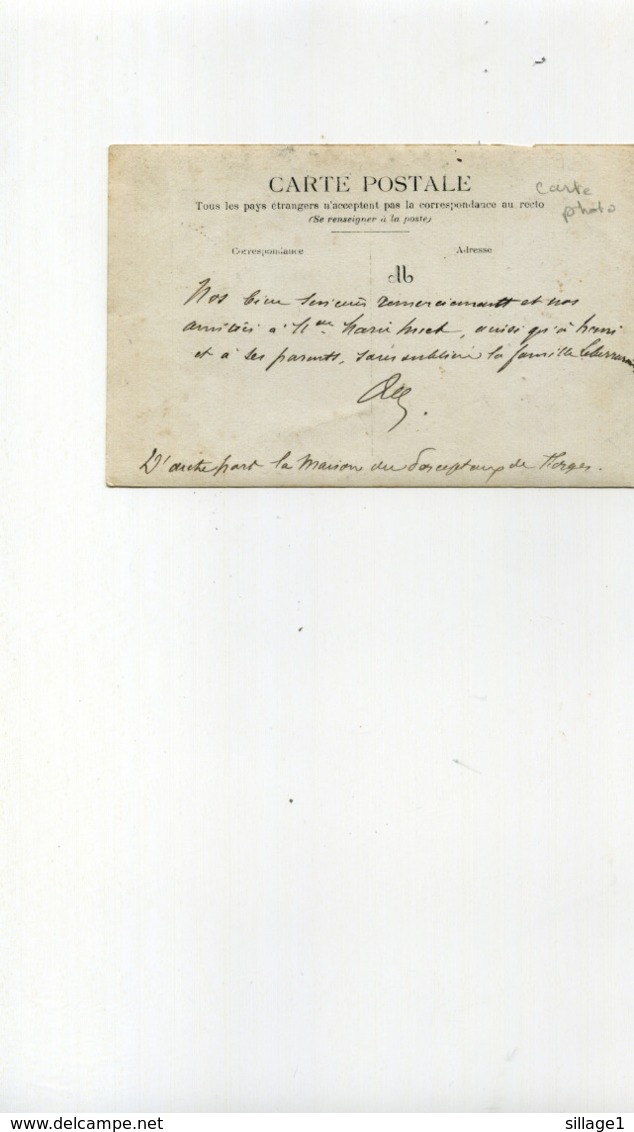 CARTE POSTALE
Tous les pays étrangers n'acceptent pas la correspondance au recto
(Se renseigner à la poste)
carte
photo
Correspondance
Adresse
Nos bien sincères remerciements et nos
amitiés à Mme Marie, ainsi qu'à
et à ses parents, sans oublier la famille
la Maison du de
www.delcampe.net
sillage1